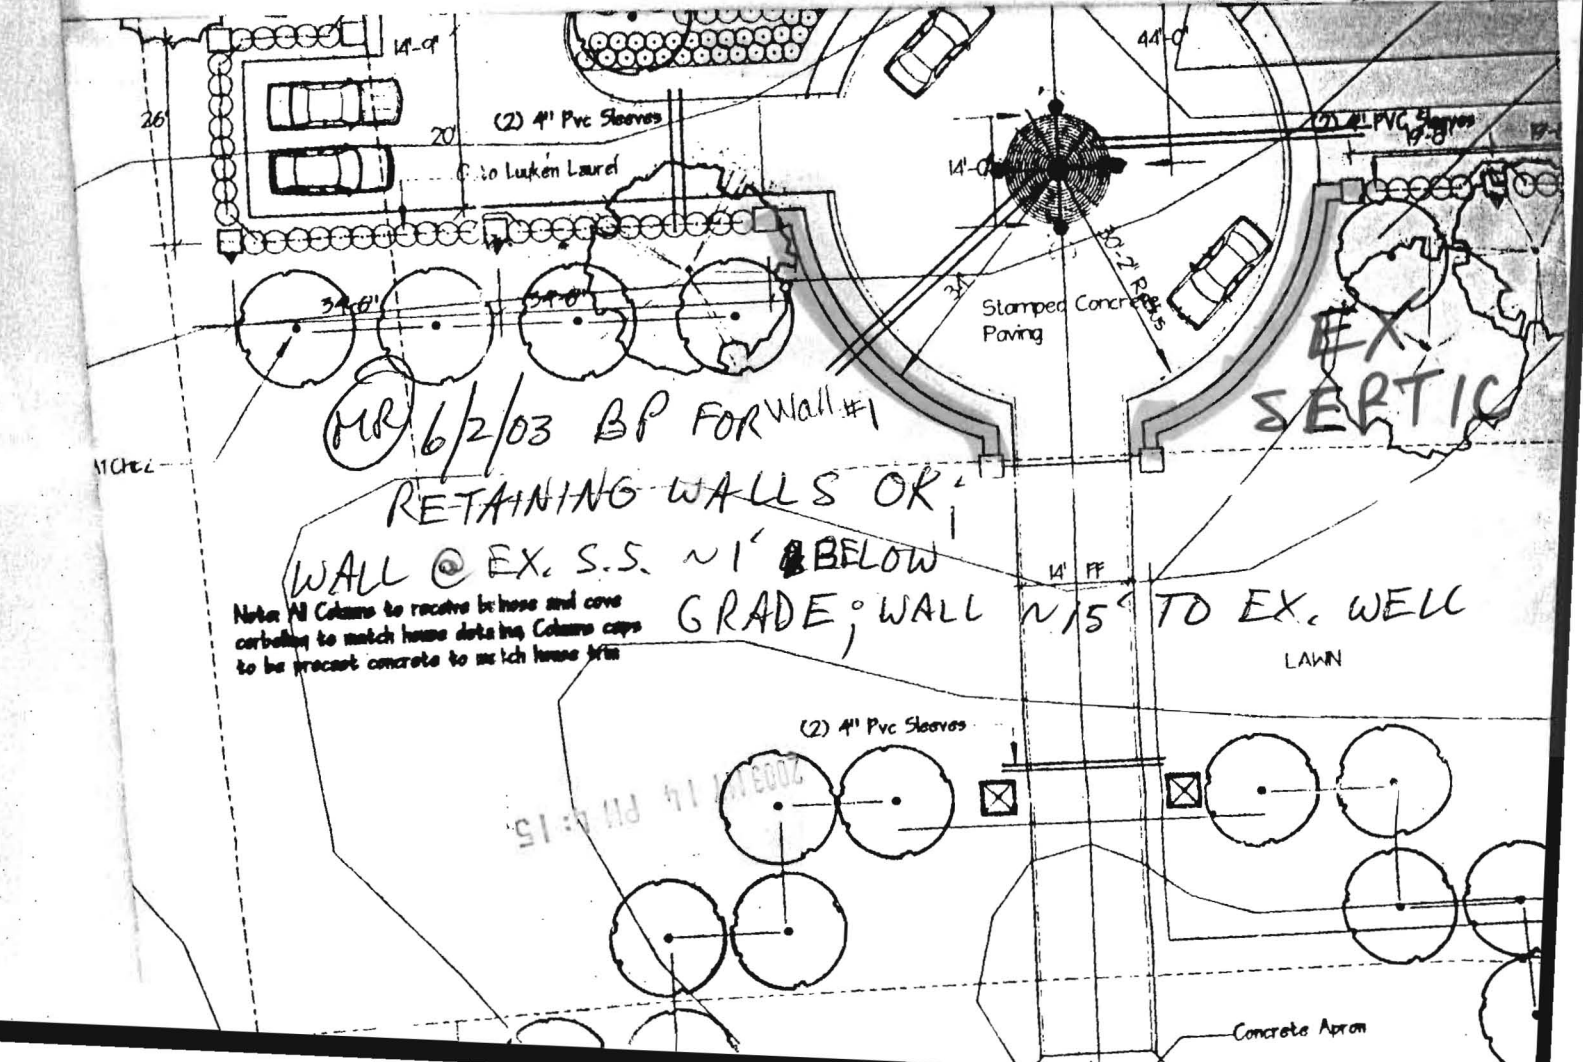 14'-9"
44'-0"
26'
20'
(2) 4" Pvc Sleeves
(2) 4" PVC Sleeves
19'-6"
Luyken Laurel
14'-0"
34'-6"
34'-6"
30'-2" Radius
Stamped Concrete
Paving
EX
SEPTIC
MR 6/2/03 BP FOR Wall #1
RETAINING WALLS OK;
WALL @ EX. S.S. ~1' BELOW
GRADE; WALL ~15' TO EX. WELL
14' FF
Note: All Columns to receive and cove
corbeling to match house detailing Column caps
to be precast concrete to match house trim
LAWN
(2) 4" Pvc Sleeves
2003 14 PM 4:15
Concrete Apron